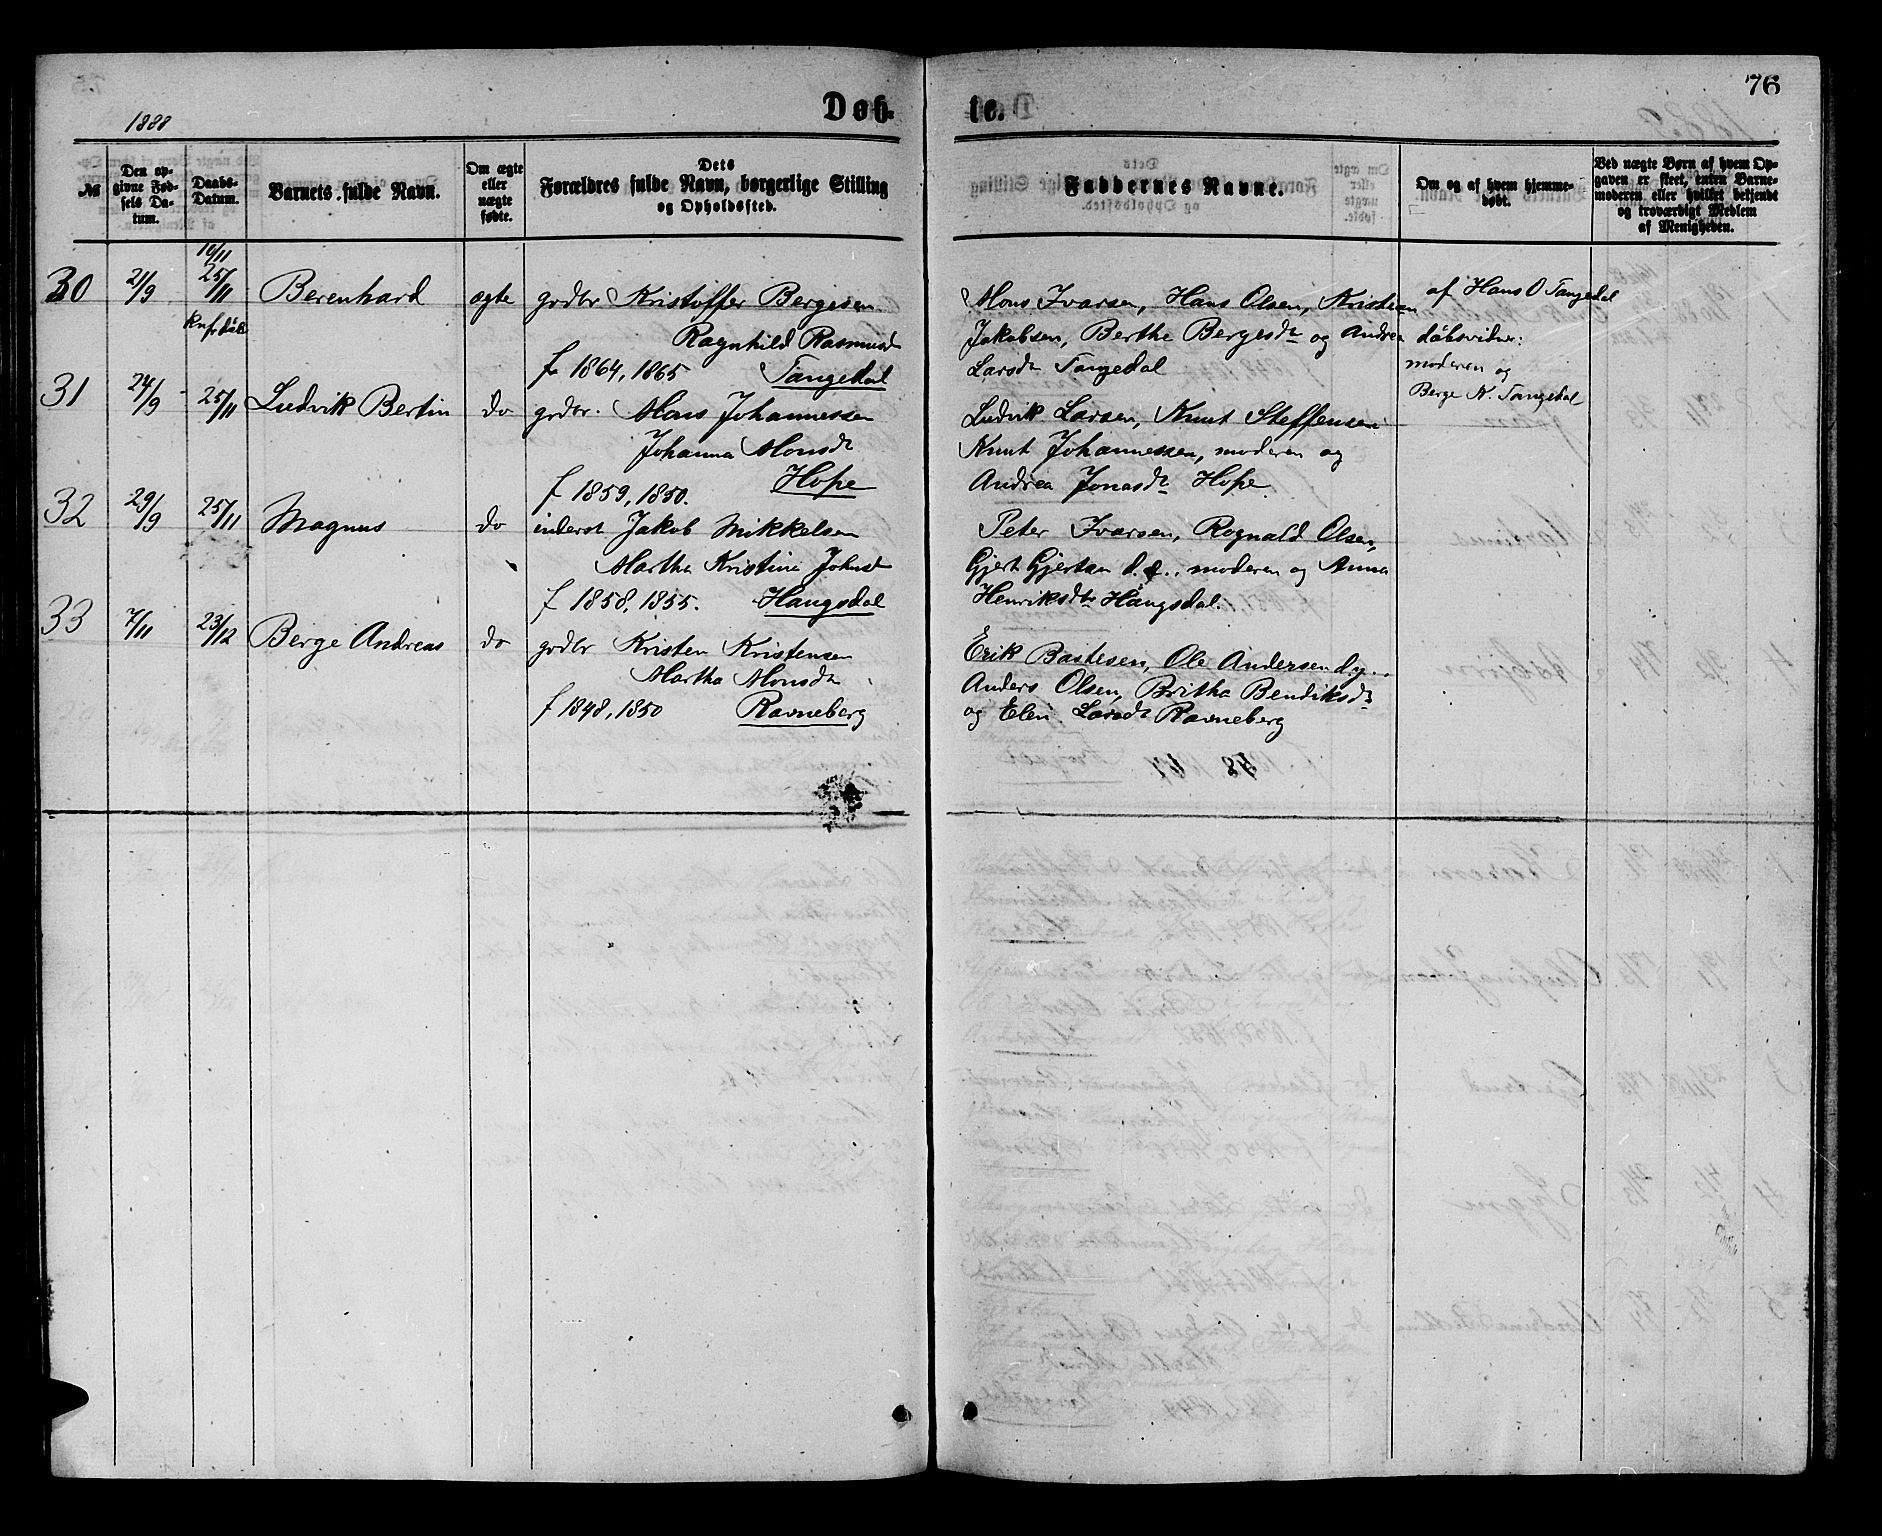 76
1888
Døb-
te.
No.
Den opgivne Fødsels Datum.
Daabs-Datum.
Barnets fulde Navn.
Om ægte eller uægte fødte.
Dets Forældres fulde Navn, borgerlige Stilling og Opholdssted.
Faddernes Navne.
Om og af hvem hjemmedøbt.
Ved uægte Børn af hvem Opgaven er skeet, enten Barnemoderen eller hvilket bekjendt og troværdigt Medlem af Menigheden.
10/11
30 21/9 25/11 Berenhard ægte gdbr Kristoffer Bergesen
Ragnhild Rasmusd
f 1864, 1865 Tangedal
Mons Ivarsen, Hans Olsen, Kristian
Jakobsen, Berthe Bergesdt og Andrea
Larsdt Tangedal
af Hans O Tangedal
dåbsvidner:
moderen og
Berge N. Tangedal
31 24/9 25/11 Ludvik Bertin do grdbr. Mons Johannessen
Johanna Monsdt
f 1859, 1850. Hope
Ludvik Larsen, Knut Steffensen
Knut Johannessen, moderen og
Andrea Jonasdt Hope
32 29/9 25/11 Magnus do inderst Jakob Mikkelsen
Martha Kristine Johnsd
f 1858, 1855. Haugsdal
Peter Ivarsen, Rognald Olsen,
Gjert Gjertsen d.e., moderen og Anna
Henriksdtr Haugsdal.
33 7/11 23/12 Berge Andreas do grdbr Kristen Kristensen
Martha Monsdt
f 1848, 1850 Ravneberg
Erik Bastesen, Ole Andersen d.y.,
Anders Olsen, Britha Bendiksdt
og Elen Larsdt Ravneberg